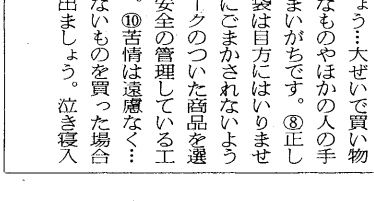 ょう…大ぜいで買い物
なものやほかの人の手
まいがちです。⑧正し
袋は目方にはいりませ
にごまかされないよう
ークのついた商品を選
安全の管理している工
。⑩苦情は遠慮なく…
ないものを買った場合
出ましょう。泣き寝入